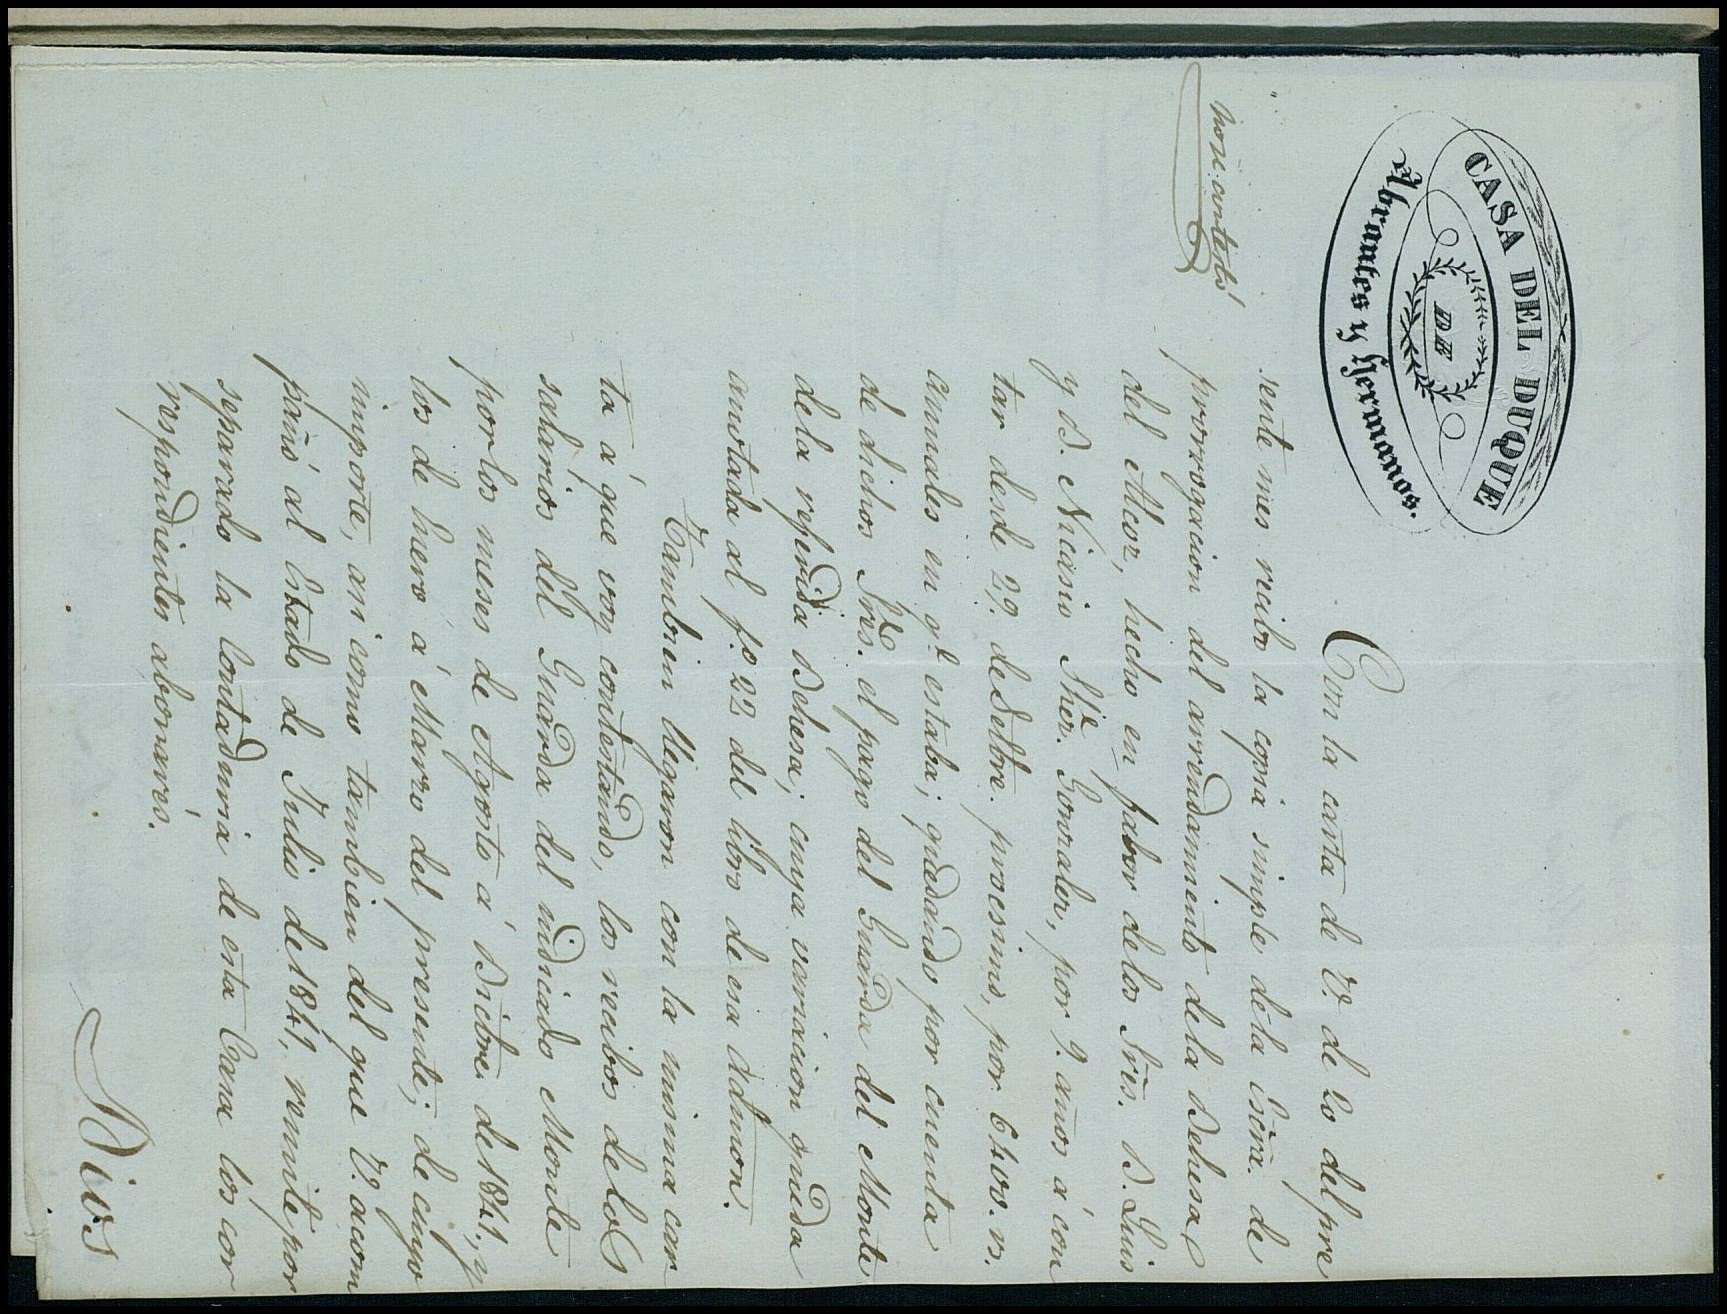 CASA DEL DUQUE
DE
Abrantes y Hermanos.
Con la carta de V. de 20 del pre
sente mes recibo la copia simple de la Escra. de
prorrogacion del arrendamiento dela Dehesa
del Alcor, hecho en favor delos Sres. D. Luis
y D. Nicasio Gonzalez, por 9. años á con
tar desde 29. de Setbre. procsimo, por 6400. rs.
annuales en qe. estaba; quedando por cuenta
de dichos Sres. el pago del Guarda del Monte
dela referida Dehesa; cuya variacion queda
anotada al fo. 22 del libro de esa Admon.
Tambien llegaron con la misma car
ta á que voy contestando, los recibos delos
salarios del Guarda del indicado Monte
por los meses de Agosto á Dicbre. de 1841, y
los de Enero á Marzo del presente; de cuyo
importe, asi como tambien del que V. acom
pañó al Estado de Julio de 1841, remite por
separado la Contaduria de esta Casa los cor
respondientes abonarés.
Dios